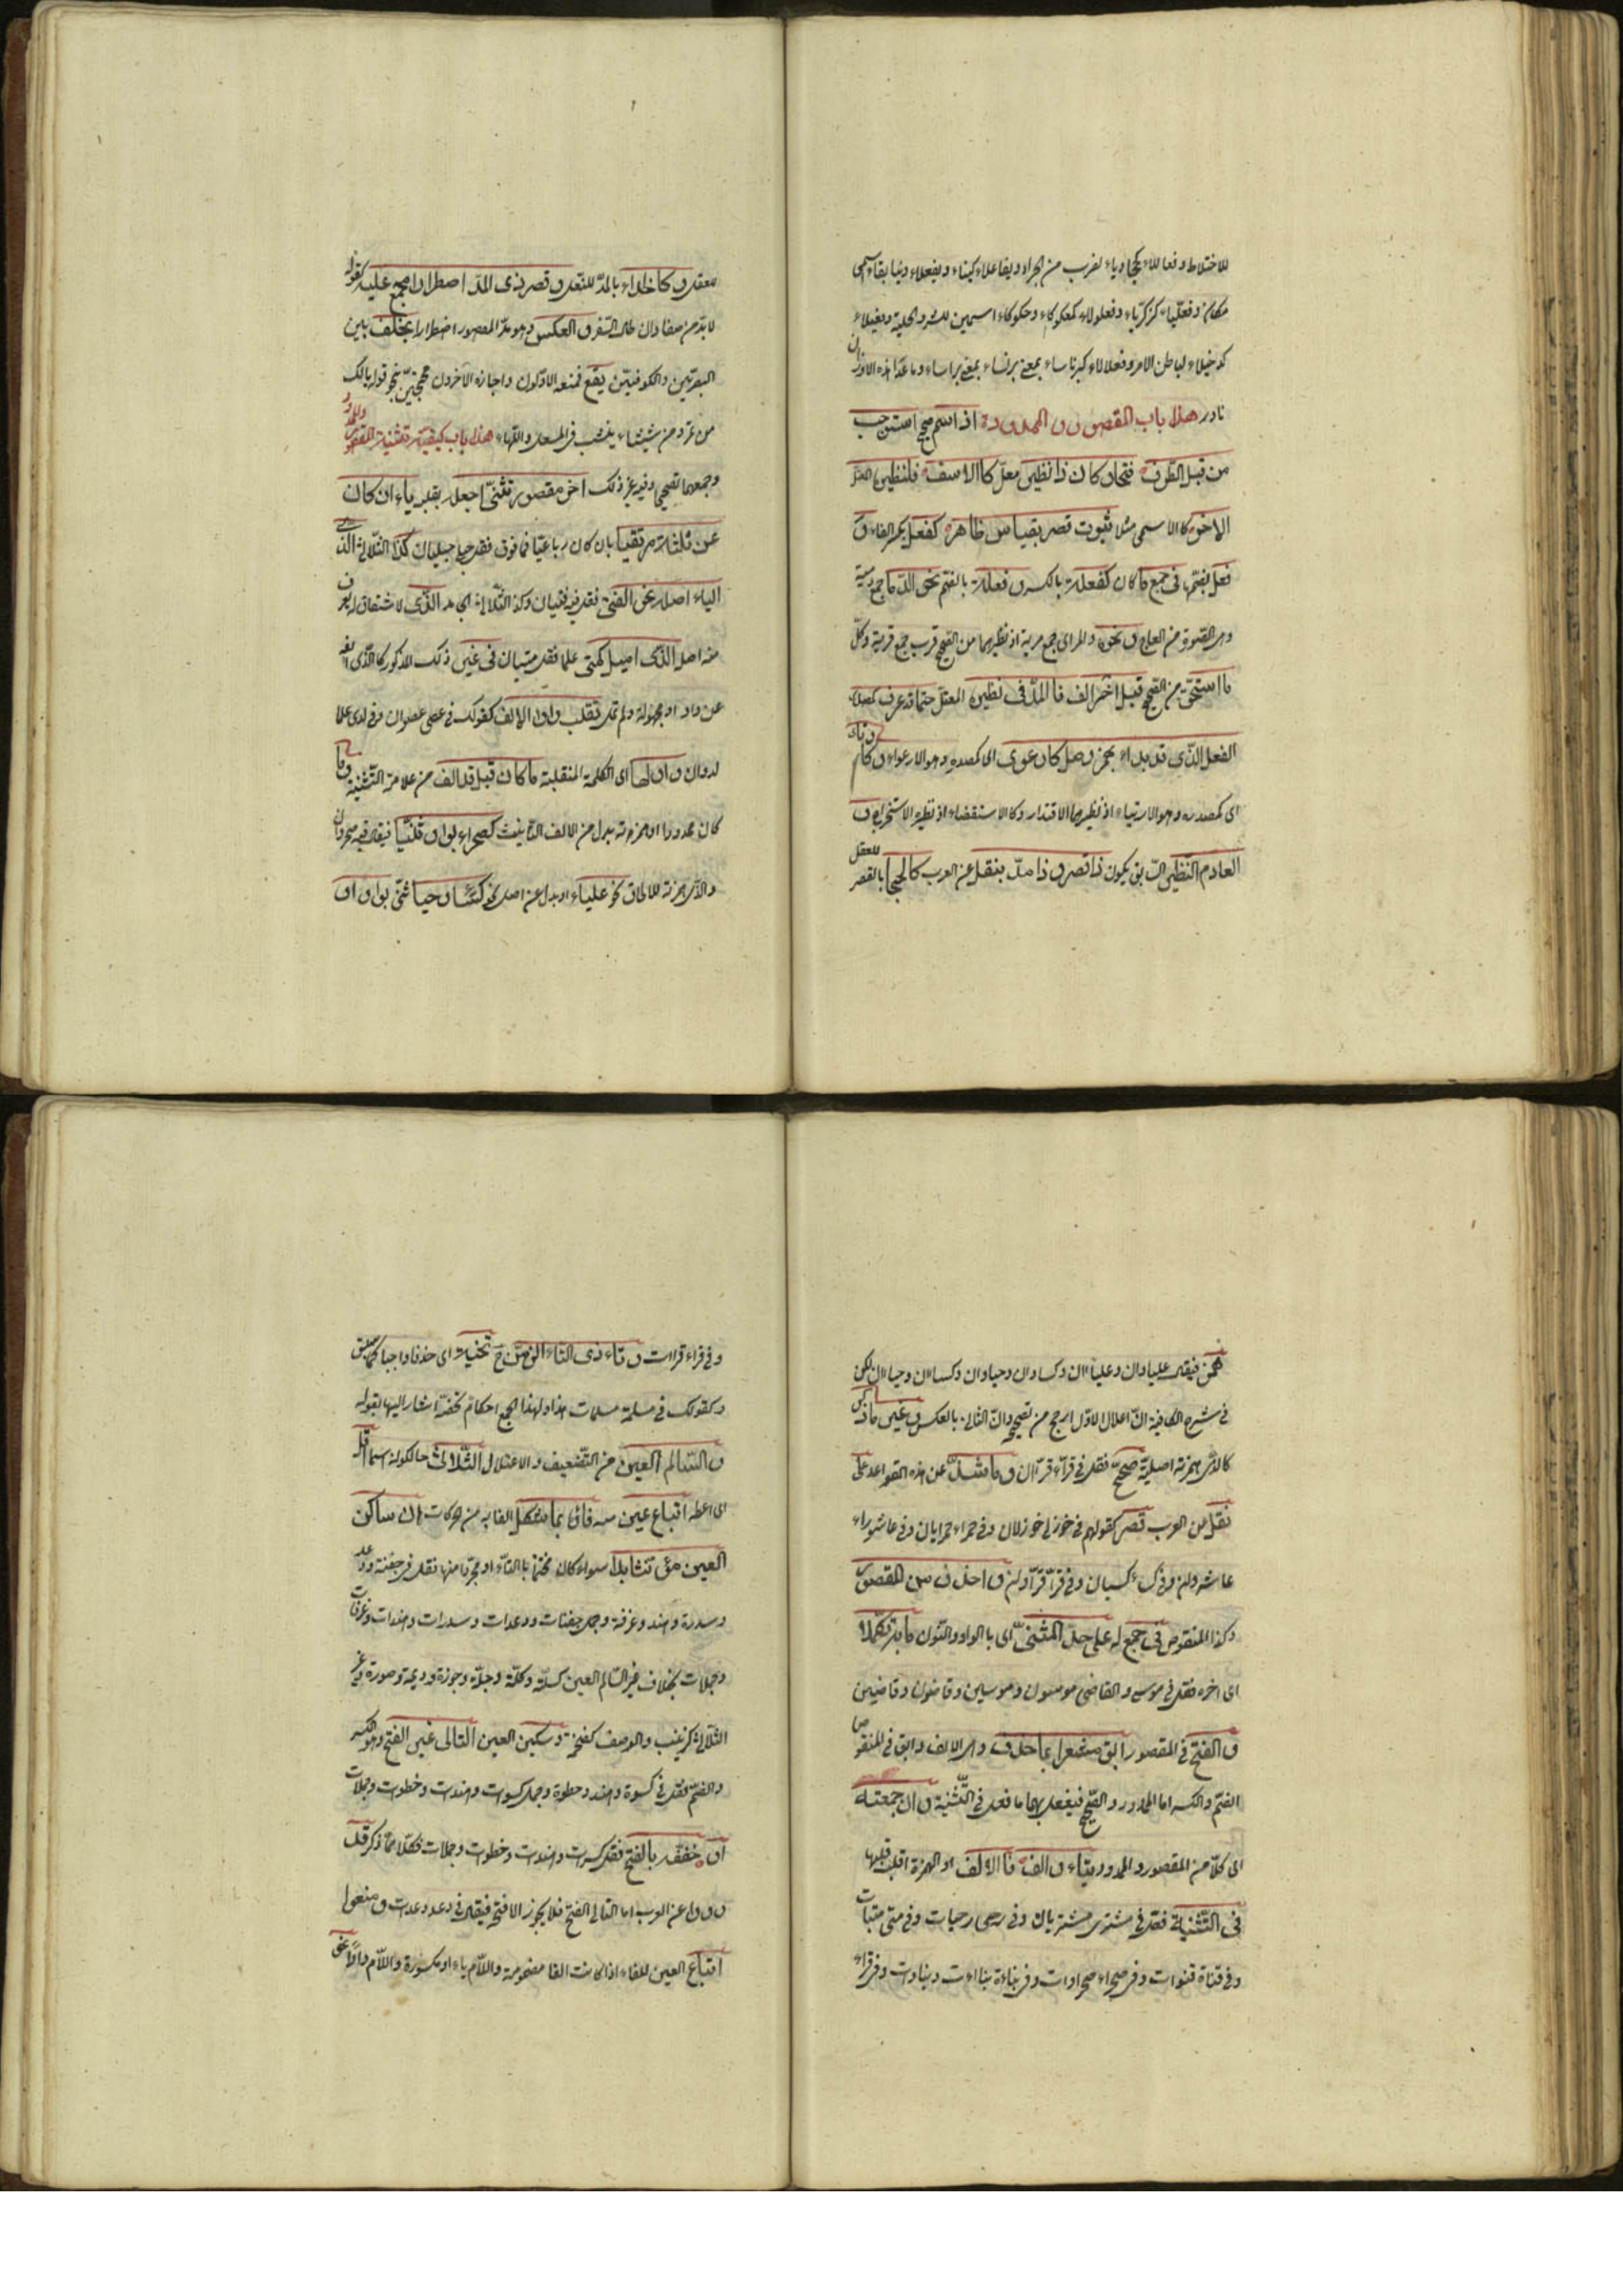 للاختلاط وفعاللاء كجخادباء لضرب من الجراد ويفاعلاء كينابعاء اسمى
مكان وفعلياء كزكرياء وفعلولاء كمعكوكاء وبعكوكاء اسمين للشر والجلبة وفعيلاء
كدخيلاء لباطن الامر وفعنالاء كبرناساء بمعنى برنساء بمعنى براساء وما عدا هذه الاوزان
نادر هذا باب المقصور والممدود اذا اسم صحيح استوجب
من قبل الطرف فتحا وكان ذا نظير معل كالاسف فلنظيره المعل
الاخر كالاسى مثلا ثبوت قصر بقياس ظاهر كفعل بكسر الفاء و
فعل بضمها في جمع ما كان كفعلة بالكسر وفعلة بالضم نحو الدمى جمع دمية
وهى الصورة من العاج ونحوه والمرى جمع مرية اذ نظيرهما من الصحيح قرب جمع قربة وكل
ما استحق من الصحيح قبل اخر الف فالمد في نظيره المعتل حتما قد عرف كمصدر
الفعل الذى قد بدئا بهمز وصل كارعوى اى كمصدره وهو الارعواء وكارتأى
اى كمصدره وهو الارتياء اذ نظيرهما الاقتدار وكالاستقصاء اذ نظيره الاستخراج و
العادم النظير السابق يكون ذا قصر وذا مد بنقل عن العرب كالحجا بالقصر للعقل
للعقل وكالحذاء بالمد للنعل وقصر ذى المد اضطرارا مجمع عليه كقوله
لا بد من صنعا وان طال السفر والعكس وهو مد المقصور اضطرارا بخلف بين
البصريين والكوفيين يقع فمنعه الاولون واجازه الآخرون محتجين بنحو قوله يا لك
من تمر ومن شيشاء ينشب في المسعل واللهاء هذا باب كيفية تثنية المقصور والممدود
وجمعهما تصحيحا وفيه غير ذلك اخر مقصور تثنى اجعله بقلبه ياء ان كان
عن ثلثة مرتقيا بان كان رباعيا فما فوق فقل في حبلى حبليان كذا الثلاثى الذى
الياء اصله نحو الفتى فقل فيه فتيان وكذا الثلاثى الجامد الذى لا اشتقاق له يعرف
منه اصله الذى اميل كمتى علما فقل متيان في غير ذلك المذكور كالذى الفه
عن واو او مجهولة ولم تمل تقلب واوا الالف كقولك في عصى عصوان وفي لدى علما
لدوان واولها اى الكلمة المنقلبة ما كان قبل قد الف من علامة التثنية وما
كان ممدودا وهمزته بدل من الالف التانيث كصحراء بواو ثنيا فيقال فيه صحراوان
والذى همزته للالحاق نحو علباء او بدل عن اصل نحو كساء وحياء ثنى بواو او
همز فيقال علباوان وعلباءان وكساوان وحياوان وكساءان وحياءان لكن
في شرح الكافية ان اعلال الاول ارجح من تصحيحه وان الثانى بالعكس وغير ما ذكر
كالذى همزته اصلية صحح فقل في قراء قراءان وما شذ عن هذه القواعد على
نقل عن العرب قصر كقولهم في خوزلى خوزلان وفي حمراء حمرايان وفي عاشوراء
عاشوران وفي كساء كسيان وفي قراء قراوان واحذف من المقصور
وكذا المنقوص في جمع له على حد المثنى اى بالواو والنون ما به تكملا
اى اخره فقل في موسى والقاضى موسون وموسين وقاضون وقاضين
والفتح في المقصور ابق مشعرا بما حذف وهو الالف وابق في المنقوص
الضم والكسر اما الممدود والصحيح فيفعل بهما ما فعل في التثنية وان جمعته
اى كلا من المقصور والممدود بتاء والف فالالف او الهمزة اقلب قلبها
في التثنية فقل في مشترى مشتريات وفي رحى رحيات وفي متى متيات
وفي قناة قنوات وفي صحراء صحراوات وفي بناءة بناءات وبناوات وفي قراء
وفي قراءة قراءات وتاء ذى التاء الزمن ح تنحية اى حذفا واجبا كما سبق
وكقولك في مسلمة مسلمات هذا ولهذا الجمع احكام تخصه اشار اليها بقوله
والسالم العين من التضعيف والاعتلال الثلاثى حالكونه اسما انل
اى اعطه اتباع عين منه فاءه بما شكل الفا به من الحركات ان ساكن
العين مؤنثا بدا سواء كان مختتما بالتاء او مجردا منها فقل في جفنة ودعد
وسدرة وهند وغرفة وجمل جفنات ودعدات وسدرات وهندات وغرفات
وجملات بخلاف غير السالم العين كسلة وكلة وجلة وجوزة وديمة وصورة وغير
الثلاثى كزينب والوصف كضخمة وسكن العين التالى غير الفتح وهو الكسر
والضم فقل في كسرة وهند وخطوة وجمل كسرات وهندات وخطوات وجملات
او خففه بالفتح فقل كسرات وهندات وخطوات وجملات فكلا مما ذكر قد
رووا عن العرب اما التالى الفتح فلا يجوز الا فتحه فيقال في دعد دعدات ومنعوا
اتباع العين للفاء اذا كانت الفا مضمومة واللام ياء او مكسورة واللام واوا نحو